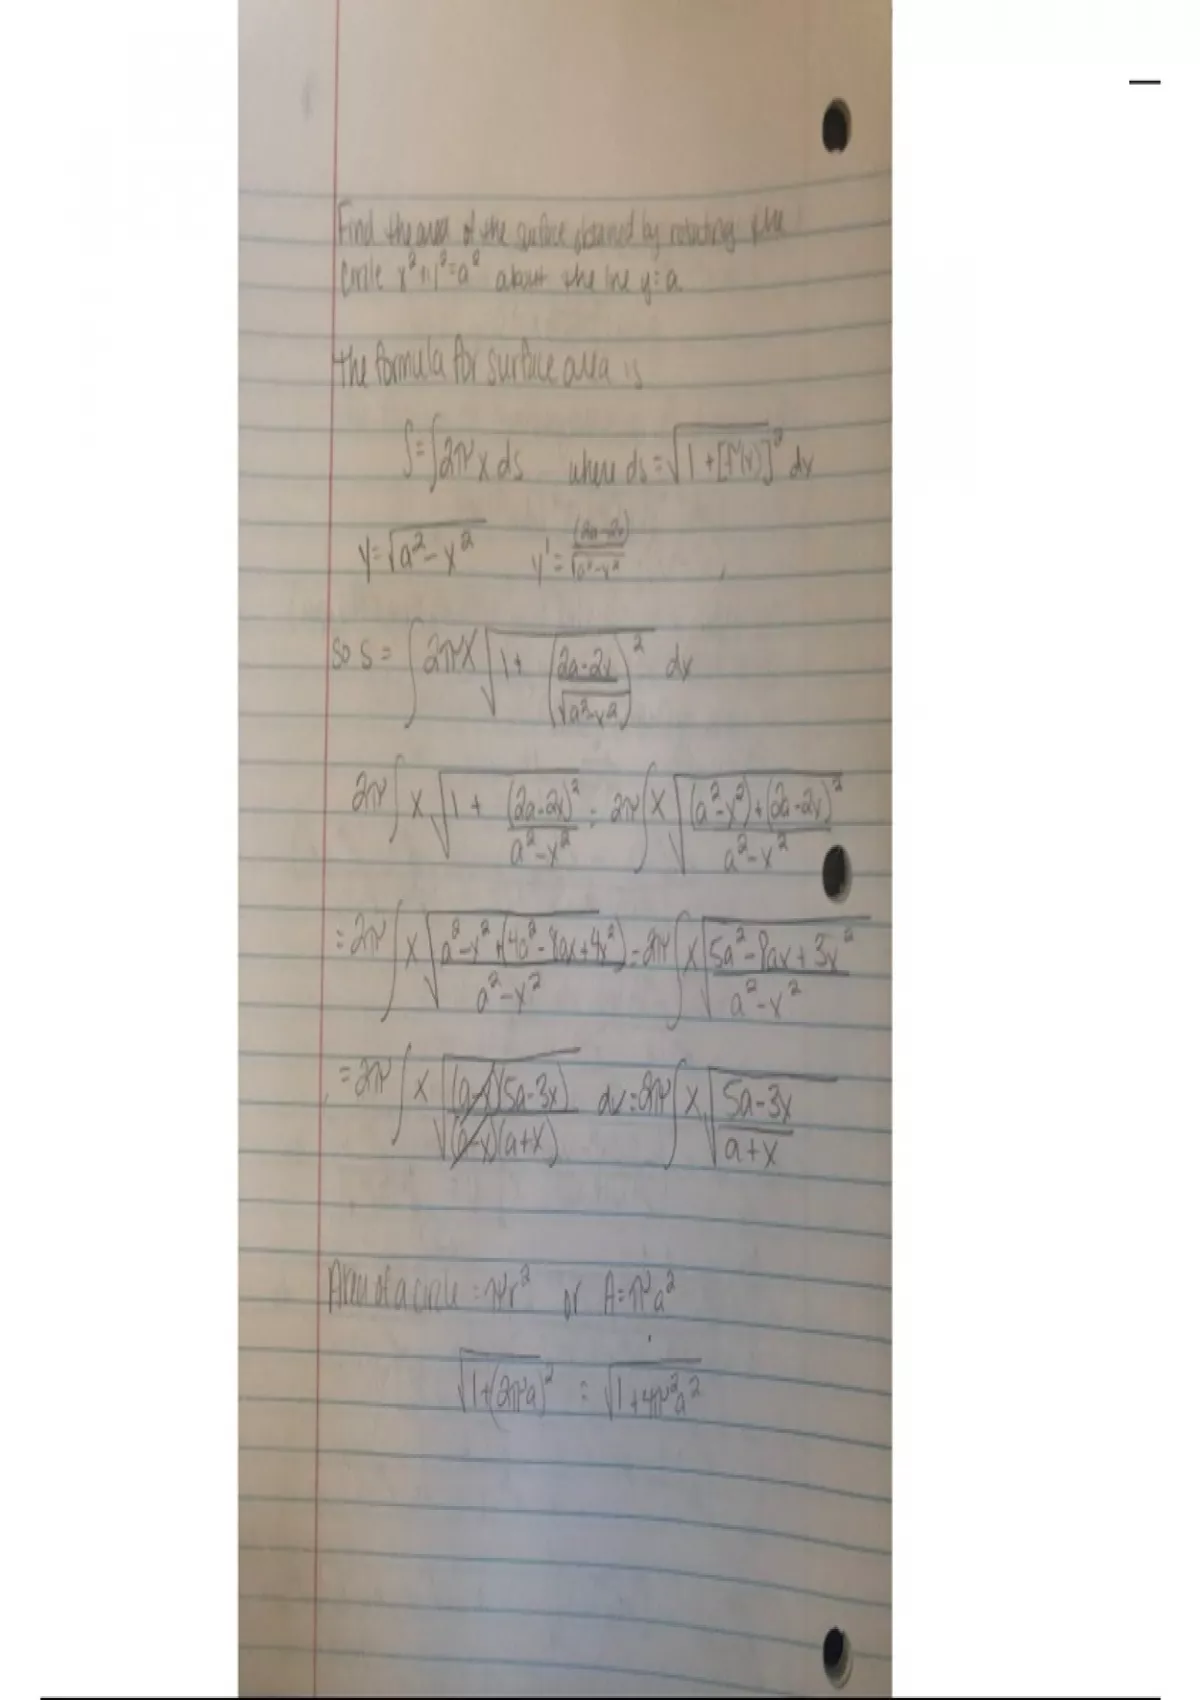 Find the area of the surface obtained by rotating the
circle x²+y²=a² about the line y=a
the formula for surface area is
S=∫2πx ds where ds=√(1+[f'(x)]²) dx
y=√(a²-x²) y'=(2a-2x)/√(a²-x²)
So S=∫2πx√(1+((2a-2x)/√(a²-x²))²) dx
2π∫x√(1+(2a-2x)²/(a²-x²)) = 2π∫x√(((a²-x²)+(2a-2x)²)/(a²-x²))
=2π∫x√((a²-x²+(4a²-8ax+4x²))/(a²-x²)) =2π∫x√((5a²-8ax+3x²)/(a²-x²))
=2π∫x√((a-x)(5a-3x)/((a-x)(a+x))) dx=2π∫x√((5a-3x)/(a+x))
Area of a circle=πr² or A=πa²
√(1+(2πa)²) = √(1+4π²a²)